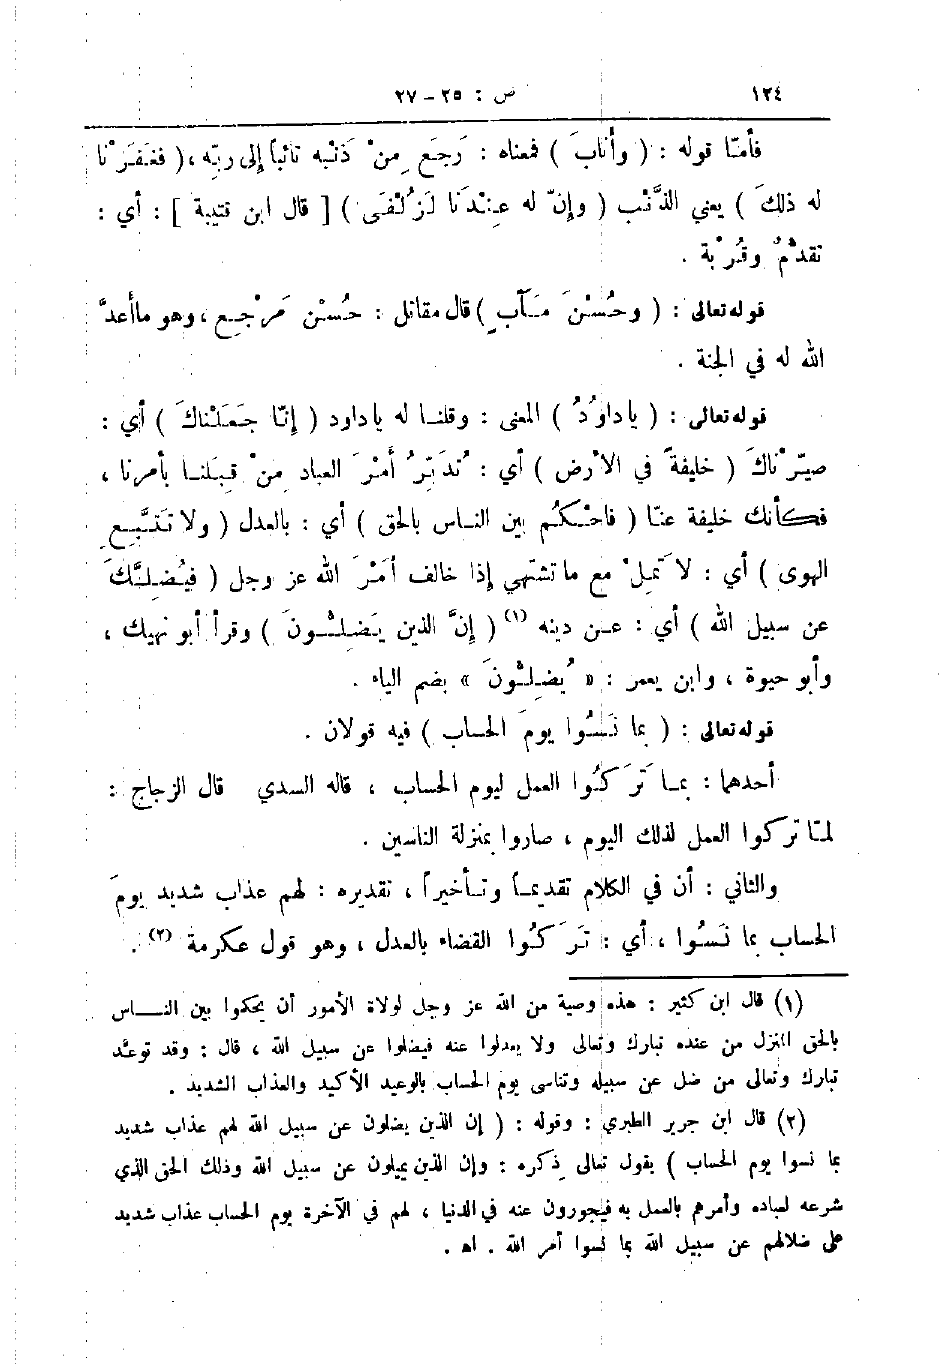 ١٢٤ ص : ٢٥ – ٢٧
فأمّا قوله : ( وأنابَ ) فمعناه : رَجَع مِنْ ذَنْبه تائباً إلى ربِّه ، ( فغَفَرْنا
له ذلكَ ) يعني الذَّنْب ( وإنّ له عِنْدَنا لَزُلْفَى ) [ قال ابن قتيبة ] : أي :
تقدُّمٌ وقُرْبة .
قوله تعالى : ( وحُسْنَ مَآبٍ ) قال مقاتل : حُسْن مَرْجِع ، وهو ماأعدَّ
الله له في الجنة .
قوله تعالى : ( ياداوُدُ ) المعنى : وقلنا له ياداود ( إنّا جَعَلْناكَ ) أي :
صيّرْناكَ ( خليفةً في الأرض ) أي : تُدَبِّرُ أَمْرَ العباد مِنْ قِبَلنا بأمرنا ،
فكأنك خليفة عنّا ( فاحْكُم بين الناس بالحق ) أي : بالعدل ( ولا تَتَّبِعِ
الهوى ) أي : لا تَمِلْ مع ماتشتهي إذا خالف أَمْرَ الله عز وجل ( فيُضِلَّكَ
عن سبيل الله ) أي : عن دينه (١) ( إنَّ الذين يَضِلُّونَ ) وقرأ أبو نهيك ،
وأبو حيوة ، وابن يعمر : « يُضِلُّونَ » بضم الياء .
قوله تعالى : ( بما نَسُوا يومَ الحساب ) فيه قولان .
أحدهما : بما تَرَكُوا العمل ليوم الحساب ، قاله السدي قال الزجاج :
لمّا تركوا العمل لذلك اليوم ، صاروا بمنزلة الناسين .
والثاني : أن في الكلام تقديماً وتأخيراً ، تقديره : لهم عذاب شديد يومَ
الحساب بما نَسُوا ، أي : تَرَكُوا القضاء بالعدل ، وهو قول عكرمة (٢) .
(١) قال ابن كثير : هذه وصية من الله عز وجل لولاة الأمور أن يحكموا بين الناس
بالحق المنزل من عنده تبارك وتعالى ولا يعدلوا عنه فيضلوا عن سبيل الله ، قال : وقد توعّد
تبارك وتعالى من ضل عن سبيله وتناسى يوم الحساب بالوعيد الأكيد والعذاب الشديد .
(٢) قال ابن جرير الطبري : وقوله : ( إن الذين يضلون عن سبيل الله لهم عذاب شديد
بما نسوا يوم الحساب ) يقول تعالى ذكره : وإن الذين يميلون عن سبيل الله وذلك الحق الذي
شرعه لعباده وأمرهم بالعمل به فيجورون عنه في الدنيا ، لهم في الآخرة يوم الحساب عذاب شديد
على ضلالهم عن سبيل الله بما نسوا أمر الله . اه .